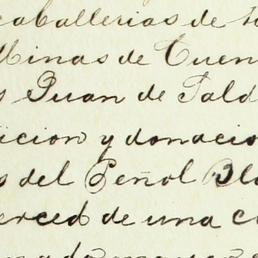 caballerias de t
Minas de Cuen
s Juan de Sald
icion y donacio
s del Peñol Bla
erced de una c